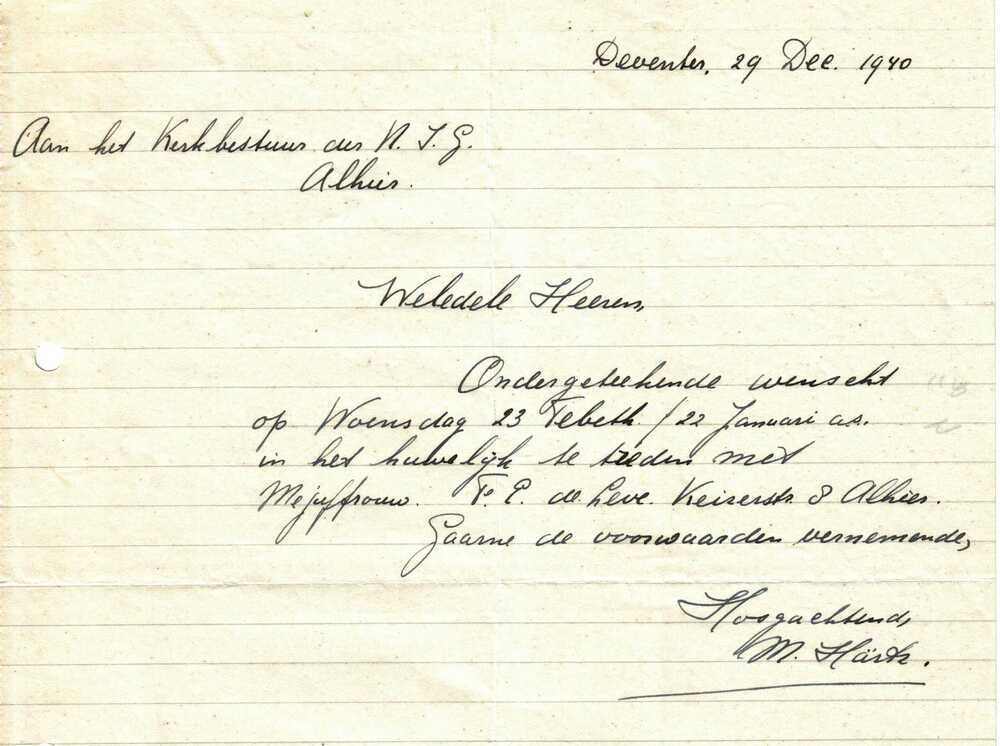 Deventer, 29 Dec. 1940
Aan het Kerkbestuur der N. I. G.
Alhier.
Weledele Heeren,
Ondergeteekende wenscht
op Woensdag 23 Tebeth / 22 Januari a.s.
in het huwelijk te treden met
Mejuffrouw. F. P. de Leve. Keizerstr. 8 Alhier.
Gaarne de voorwaarden vernemende,
Hoogachtend,
M. Härtz.